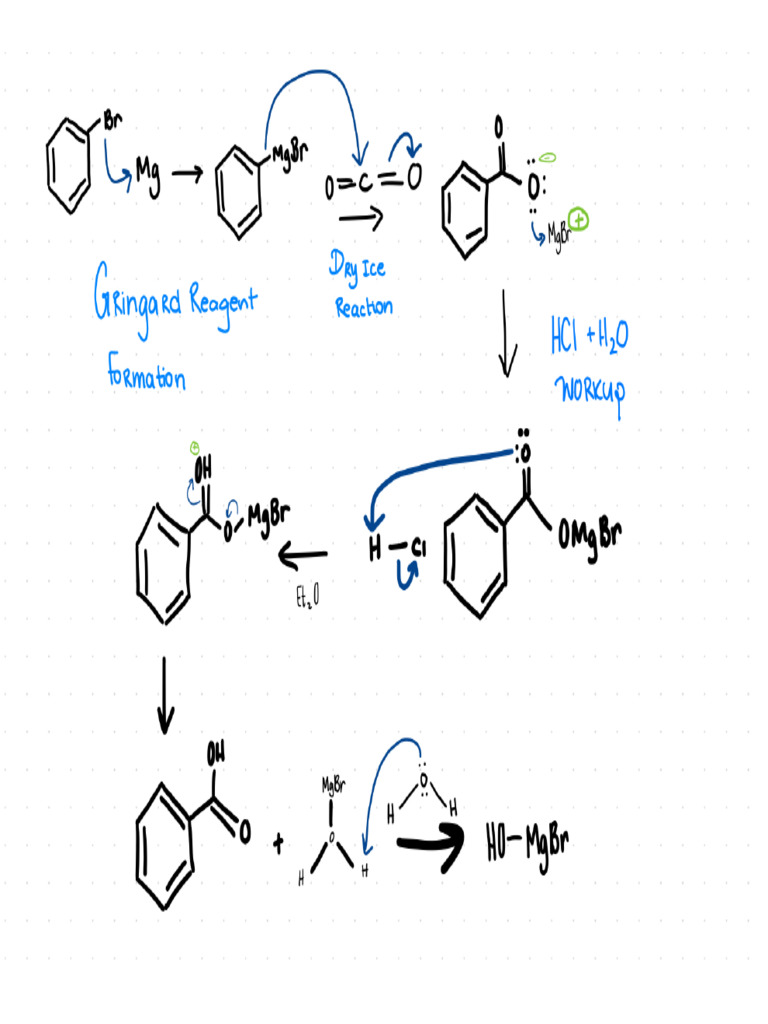 Br
Mg
MgBr
O=C=O
O
O
MgBr
+
-
Gringard Reagent
Formation
Dry Ice
Reaction
HCl + H2O
Workup
+
OH
O
MgBr
Et2O
H-Cl
O
OMgBr
OH
O
+
MgBr
O
H
H
O
H
H
HO-MgBr